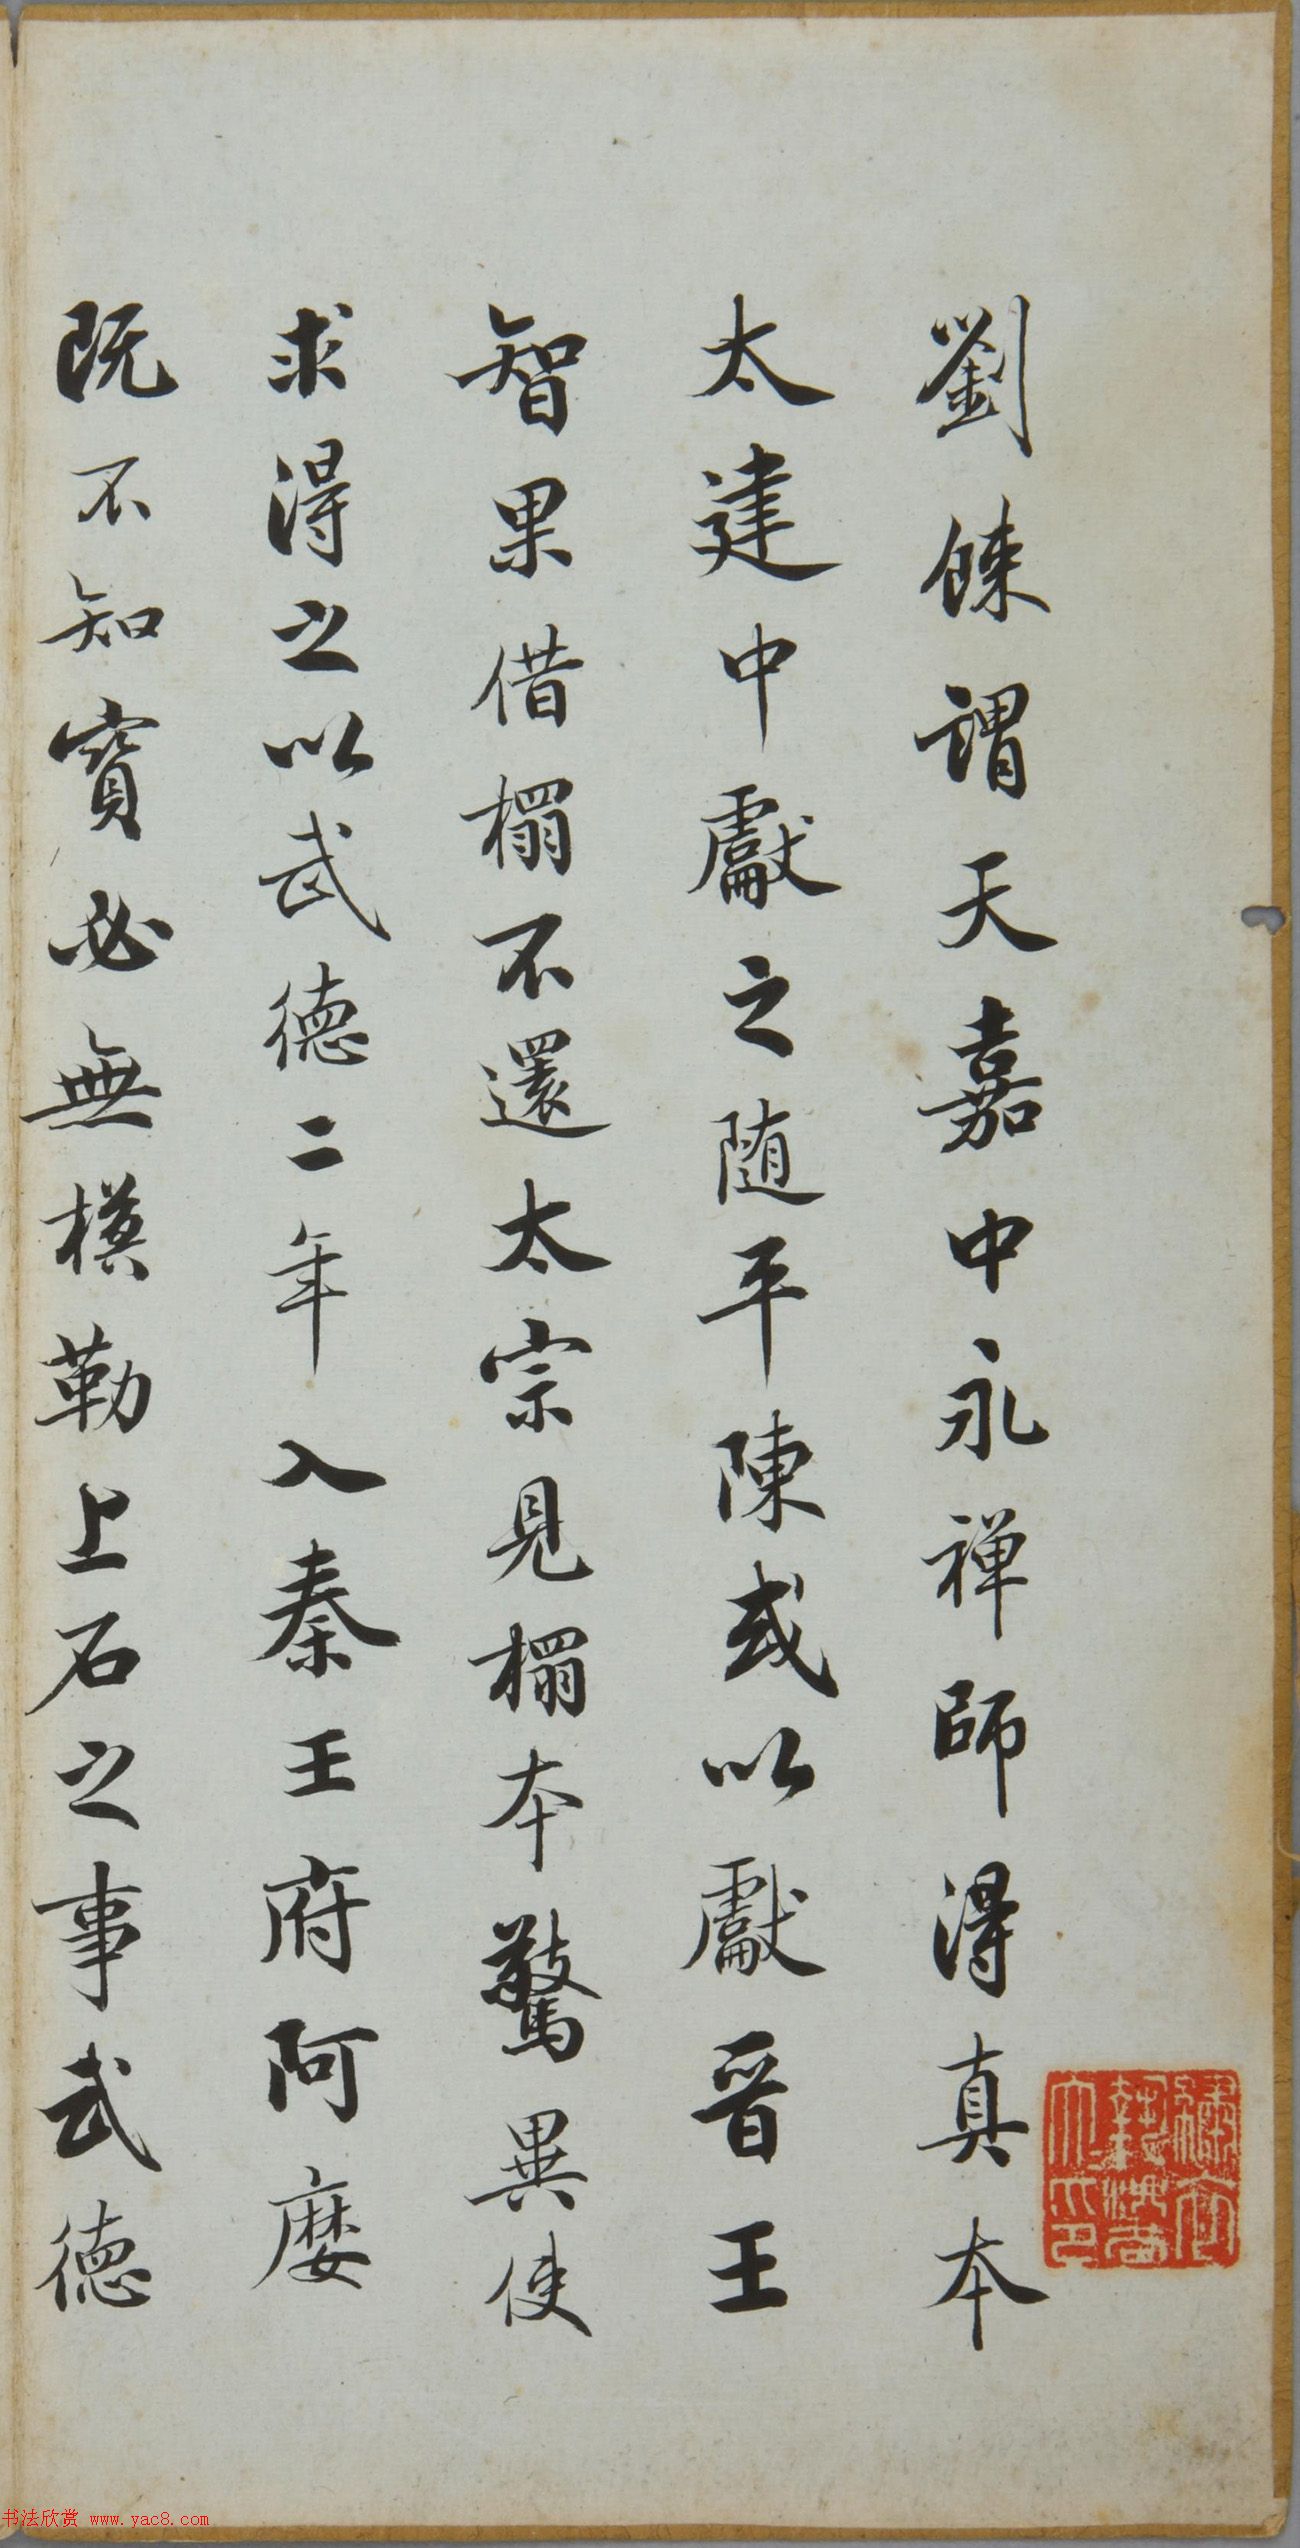 劉餗謂天嘉中永禅師得真本
太建中獻之随平陳或以獻晉王
智果借榻不還太宗見榻本驚異使
求得之以武德二年入秦王府阿㜷
既不知寳必無模勒上石之事武德
书法欣赏 www.yac8.com